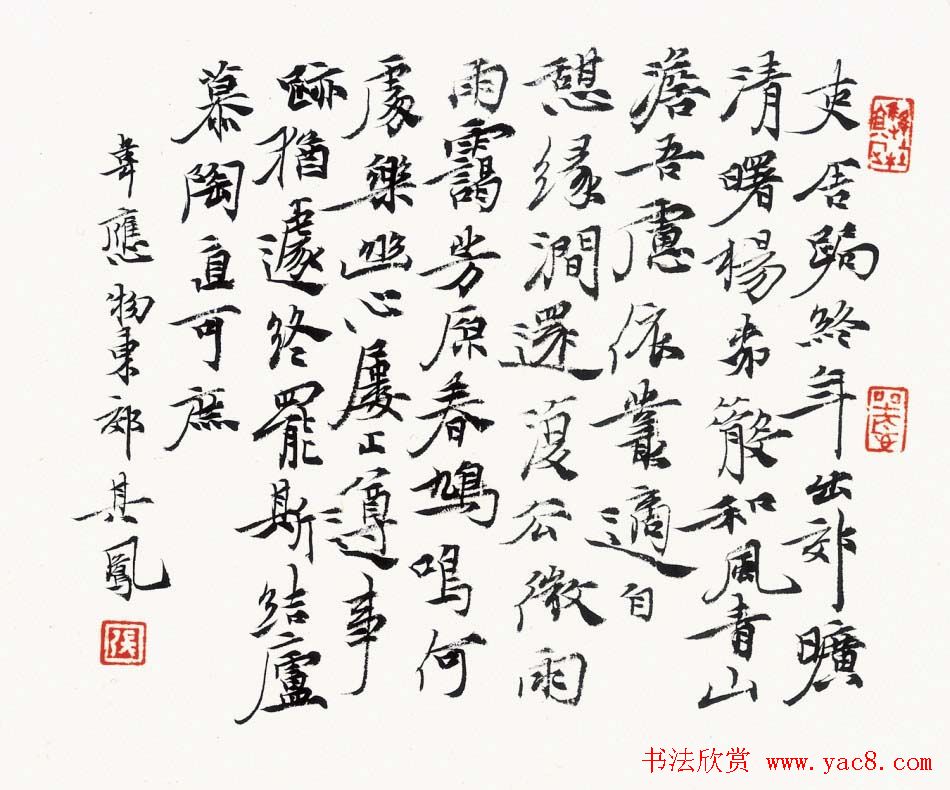 吏舍跼終年出郊曠
清曙楊柳散和風青山
澹吾慮依叢適自
憩緣澗還復去微雨
雨靄芳原春鳩鳴何
處樂幽心屢止遵事
跡猶遽終罷斯結廬
慕陶直可庶
韋應物東郊 其鳳
书法欣赏 www.yac8.com